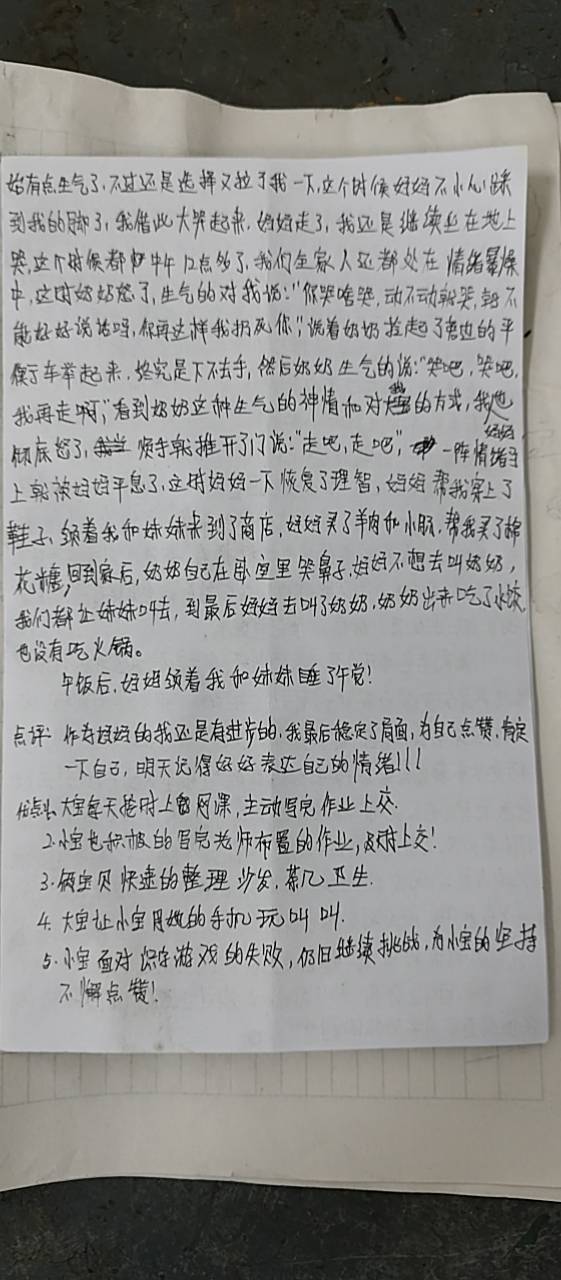 始有点生气了，不过还是选择又拉了我一下，这个时候妈妈不小心踩
到我的脚了，我借此大哭起来，妈妈走了，我还是继续坐在地上
哭，这个时候都中午12点多了，我们全家人还都处在情绪暴燥
中，这时奶奶怒了，生气的对我说：“你哭啥哭，动不动就哭，就不
能好好说话吗，你再这样我扔死你”，说着奶奶拉起了旁边的平
衡车举起来，终究是下不去手，然后奶奶生气的说：“哭吧，哭吧，
我再走啊，”看到奶奶这种生气的神情和对我的方式，我也
彻底怒了，顺手就推开了门说：“走吧，走吧”，一阵情绪马
上就被妈妈平息了，这时妈妈一下恢复了理智，妈妈帮我穿上了
鞋子，领着我和妹妹来到了商店，妈妈买了羊肉和小肠，帮我买了棉
花糖，回到家后，奶奶自己在卧室里哭鼻子，妈妈不想去叫奶奶，
我们都让妹妹叫去，到最后妈妈去叫了奶奶，奶奶出来吃了水饺，
也没有吃火锅。
午饭后，妈妈领着我和妹妹睡了午觉！
点评：作为妈妈的我还是有进步的，我最后稳定了局面，为自己点赞，肯定
一下自己，明天记得好好表达自己的情绪！！！
优点：1、大宝每天按时上网课，主动写完作业上交.
2.小宝也积极的写完老师布置的作业，及时上交！
3.俩宝贝快速的整理沙发，茶几卫生.
4.大宝让小宝用她的手机玩叫叫.
5.小宝面对识字游戏的失败，仍旧继续挑战，为小宝的坚持
不懈点赞！